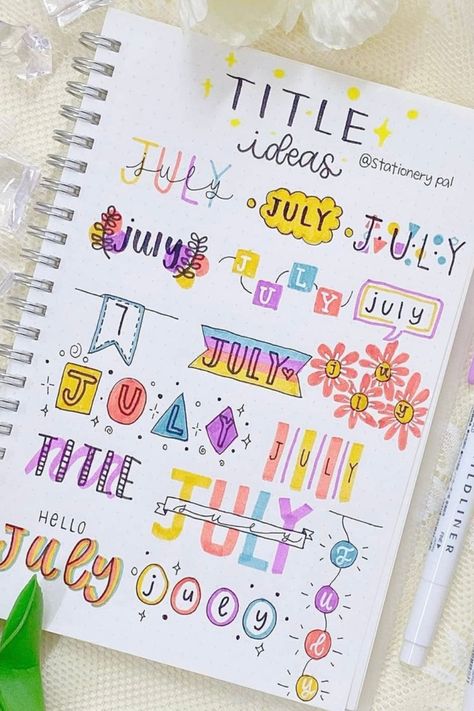 TITLE
ideas
@stationery.pal
JULY
july
JULY
JULY
july
JULY
july
7
JULY
July
JULY
JULY
TITLE
JULY
july
HELLO
July
july
July
MILDLINER